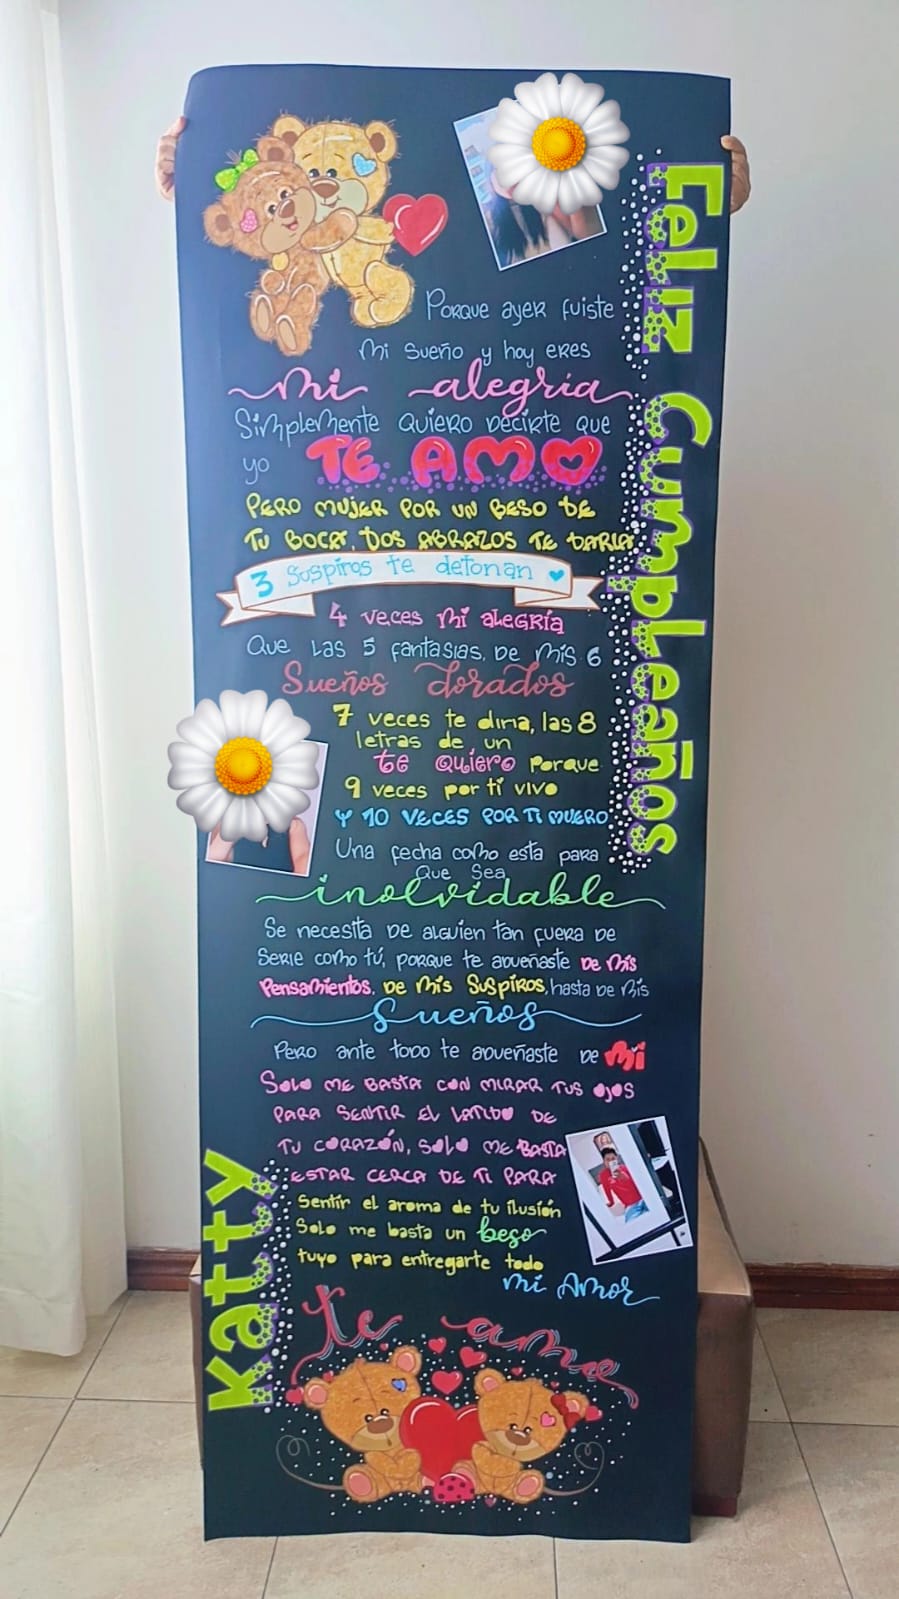 Feliz Cumpleaños
Porque ayer fuiste
Mi sueño y hoy eres
mi alegría
Simplemente quiero decirte que
yo TE AMO
Pero mujer por un beso de
tu boca, dos abrazos te daria
3 suspiros te detonan
4 veces mi alegría
Que las 5 fantasias, de mis 6
Sueños dorados
7 veces te diria, las 8
letras de un
te quiero porque
9 veces por ti vivo
y 10 veces por ti muero
Una fecha como esta para
Que Sea
inolvidable
Se necesita de alguien tan fuera de
serie como tú, porque te adueñaste de mis
Pensamientos, de mis suspiros, hasta de mis
Sueños
Pero ante todo te adueñaste de mí
Solo me basta con mirar tus ojos
para sentir el latido de
tu corazón, solo me basta
estar cerca de ti para
Sentir el aroma de tu ilusión
Solo me basta un beso
tuyo para entregarte todo
mi Amor
te amo
Katty